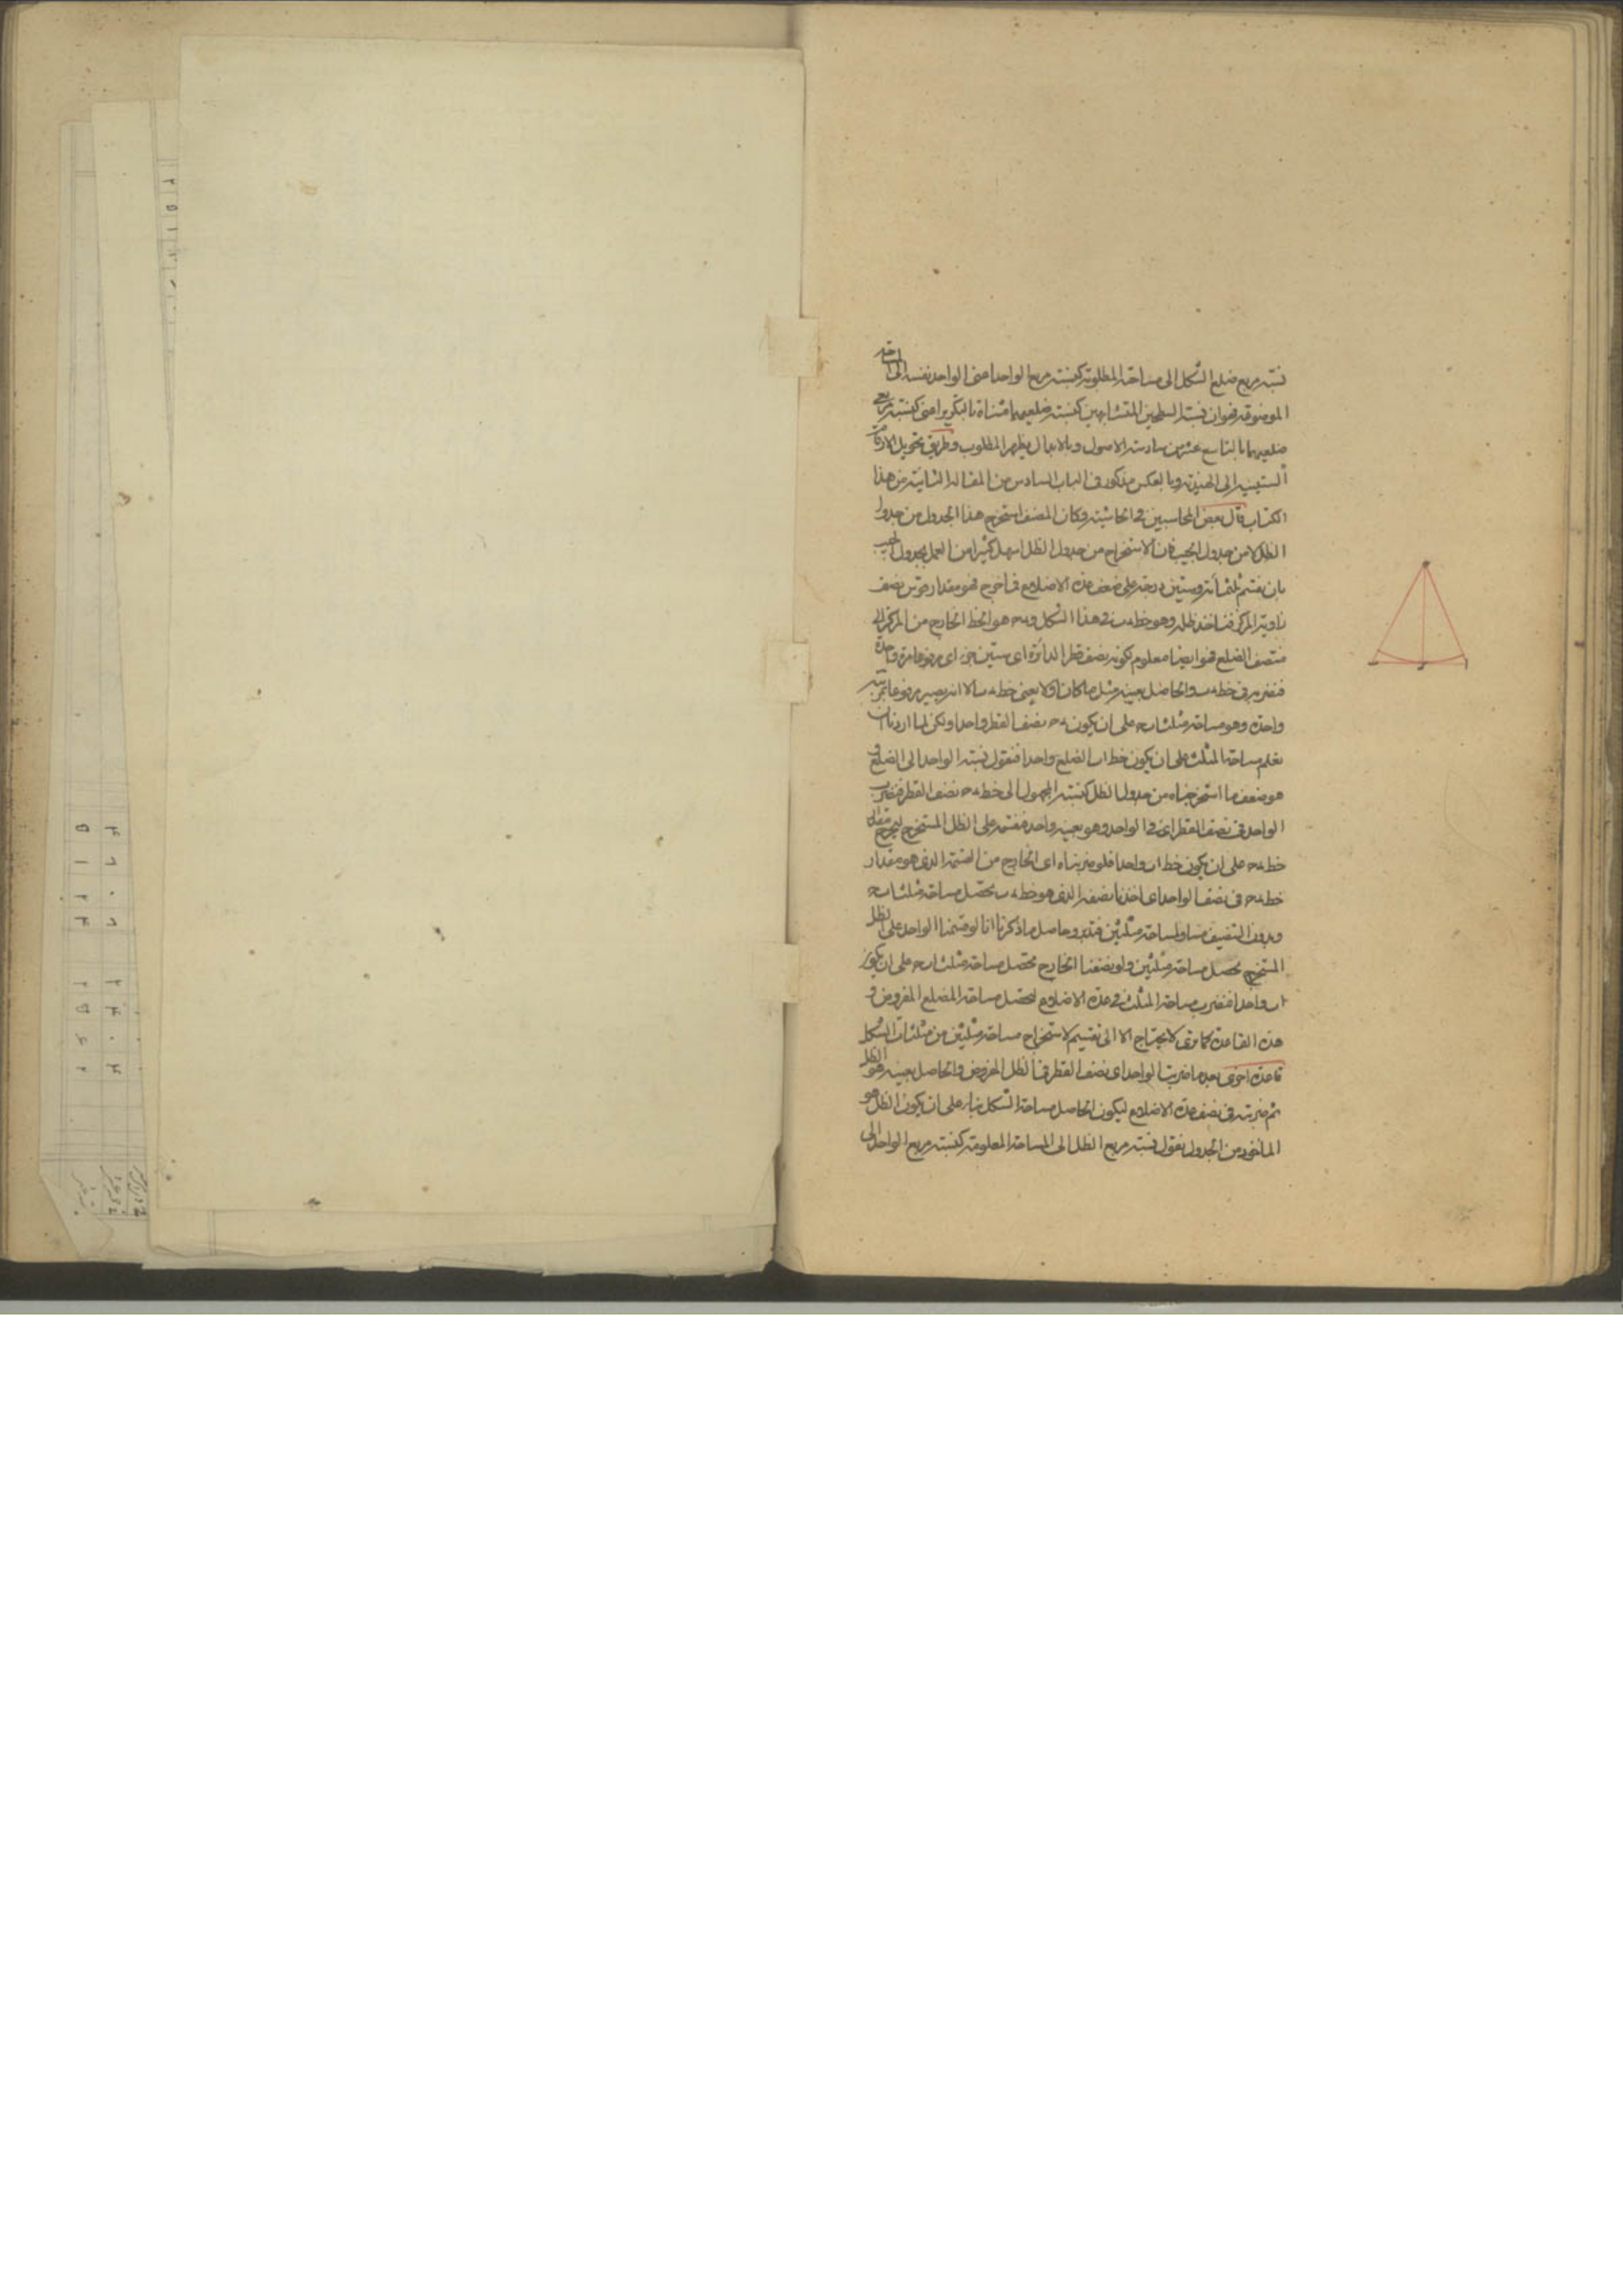 نسبة مربع ضلع الشكل الى مساحته المطلوبة كنسبة مربع الواحد اعنى الواحد نفسه الى
الموضوقه فهو ان نسبة السطحين المتشابهين كنسبة ضلعيهما مثناة بالتكرير اعنى كنسبة مربعى
ضلعيهما بالتاسع عشر من سادسة الاصول وبالابدال يظهر المطلوب وطريق تحويل الارقام
الستينية الى الهندية وبالعكس مذكور فى الباب السادس من المقالة الثانية من هذا
الكتاب قال بعض المحاسبين فى الحاشية وكان المصنف استخرج هذا الجدول من جدول
الظل لا من جدول الجيب فان الاستخراج من جدول الظل اسهل كثيرا من العمل بجدول الجيب
بان نقسم ثلثمائة وستين درجة على ضعف عدة الاضلاع فما خرج فهو مقدار قوس نصف
زاوية المركز فناخذ ظله وهو خط ء ب فى هذا الشكل و ء ح هو الخط الخارج من المركز الى
منتصف الضلع فهو ايضا معلوم لكونه نصف قطر الدائرة اى ستين جزء اى مرفوعا مرة واحدة
فنضربه فى خط ء ب والحاصل بعينه مثل ما كان اولا يعنى خط ء ب الا انه يصير مرفوعا بمرتبة
واحدة وهو مساحة مثلث ا ب ح على ان يكون ء ح نصف القطر واحدا ولكن لما اردنا ان
نعلم مساحة المثلث على ان يكون خط ا ب الضلع واحدا فنقول نسبة الواحد الى الضلع و
هو ضعف ما استخرجناه من جدول الظل كنسبة المجهول الى خط ء ح نصف القطر فنضرب
الواحد فى نصف القطر اى فى الواحد وهو بعينه واحد فنقسمه على الظل المستخرج ليخرج مقدار
خط ء ح على ان يكون خط ا ب واحدا فلو ضربناه اى الخارج من القسمة الذى هو مقدار
خط ء ح فى نصف الواحد اى اخذنا نصفه الذى هو خط ء ب يحصل مساحة مثلث ا ب ح
وبدون التنصيف مساو لمساحة مثلثين فتدبر وحاصل ما ذكرنا انا لو قسمنا الواحد على الظل
المستخرج يحصل مساحة مثلثين ولو نصفنا الخارج يحصل مساحة مثلث ا ب ح على ان يكون
ا ب واحدا فنضرب مساحة المثلث فى عدة الاضلاع ليحصل مساحة المضلع المفروض و
هذه القاعدة كما ترى لا يحتاج الا الى تقسيم لاستخراج مساحة مثلثين من مثلثات الشكل
قاعدة اخرى بعد ما ضربت الواحد اى نصف القطر فى الظل المفروض والحاصل بعينه هو الظل
ثم ضربته فى نصف عدة الاضلاع ليكون الحاصل مساحة الشكل بناء على ان يكون الظل هو
الماخوذ من الجدول نقول نسبة مربع الظل الى المساحة المعلومة كنسبة مربع الواحد الى